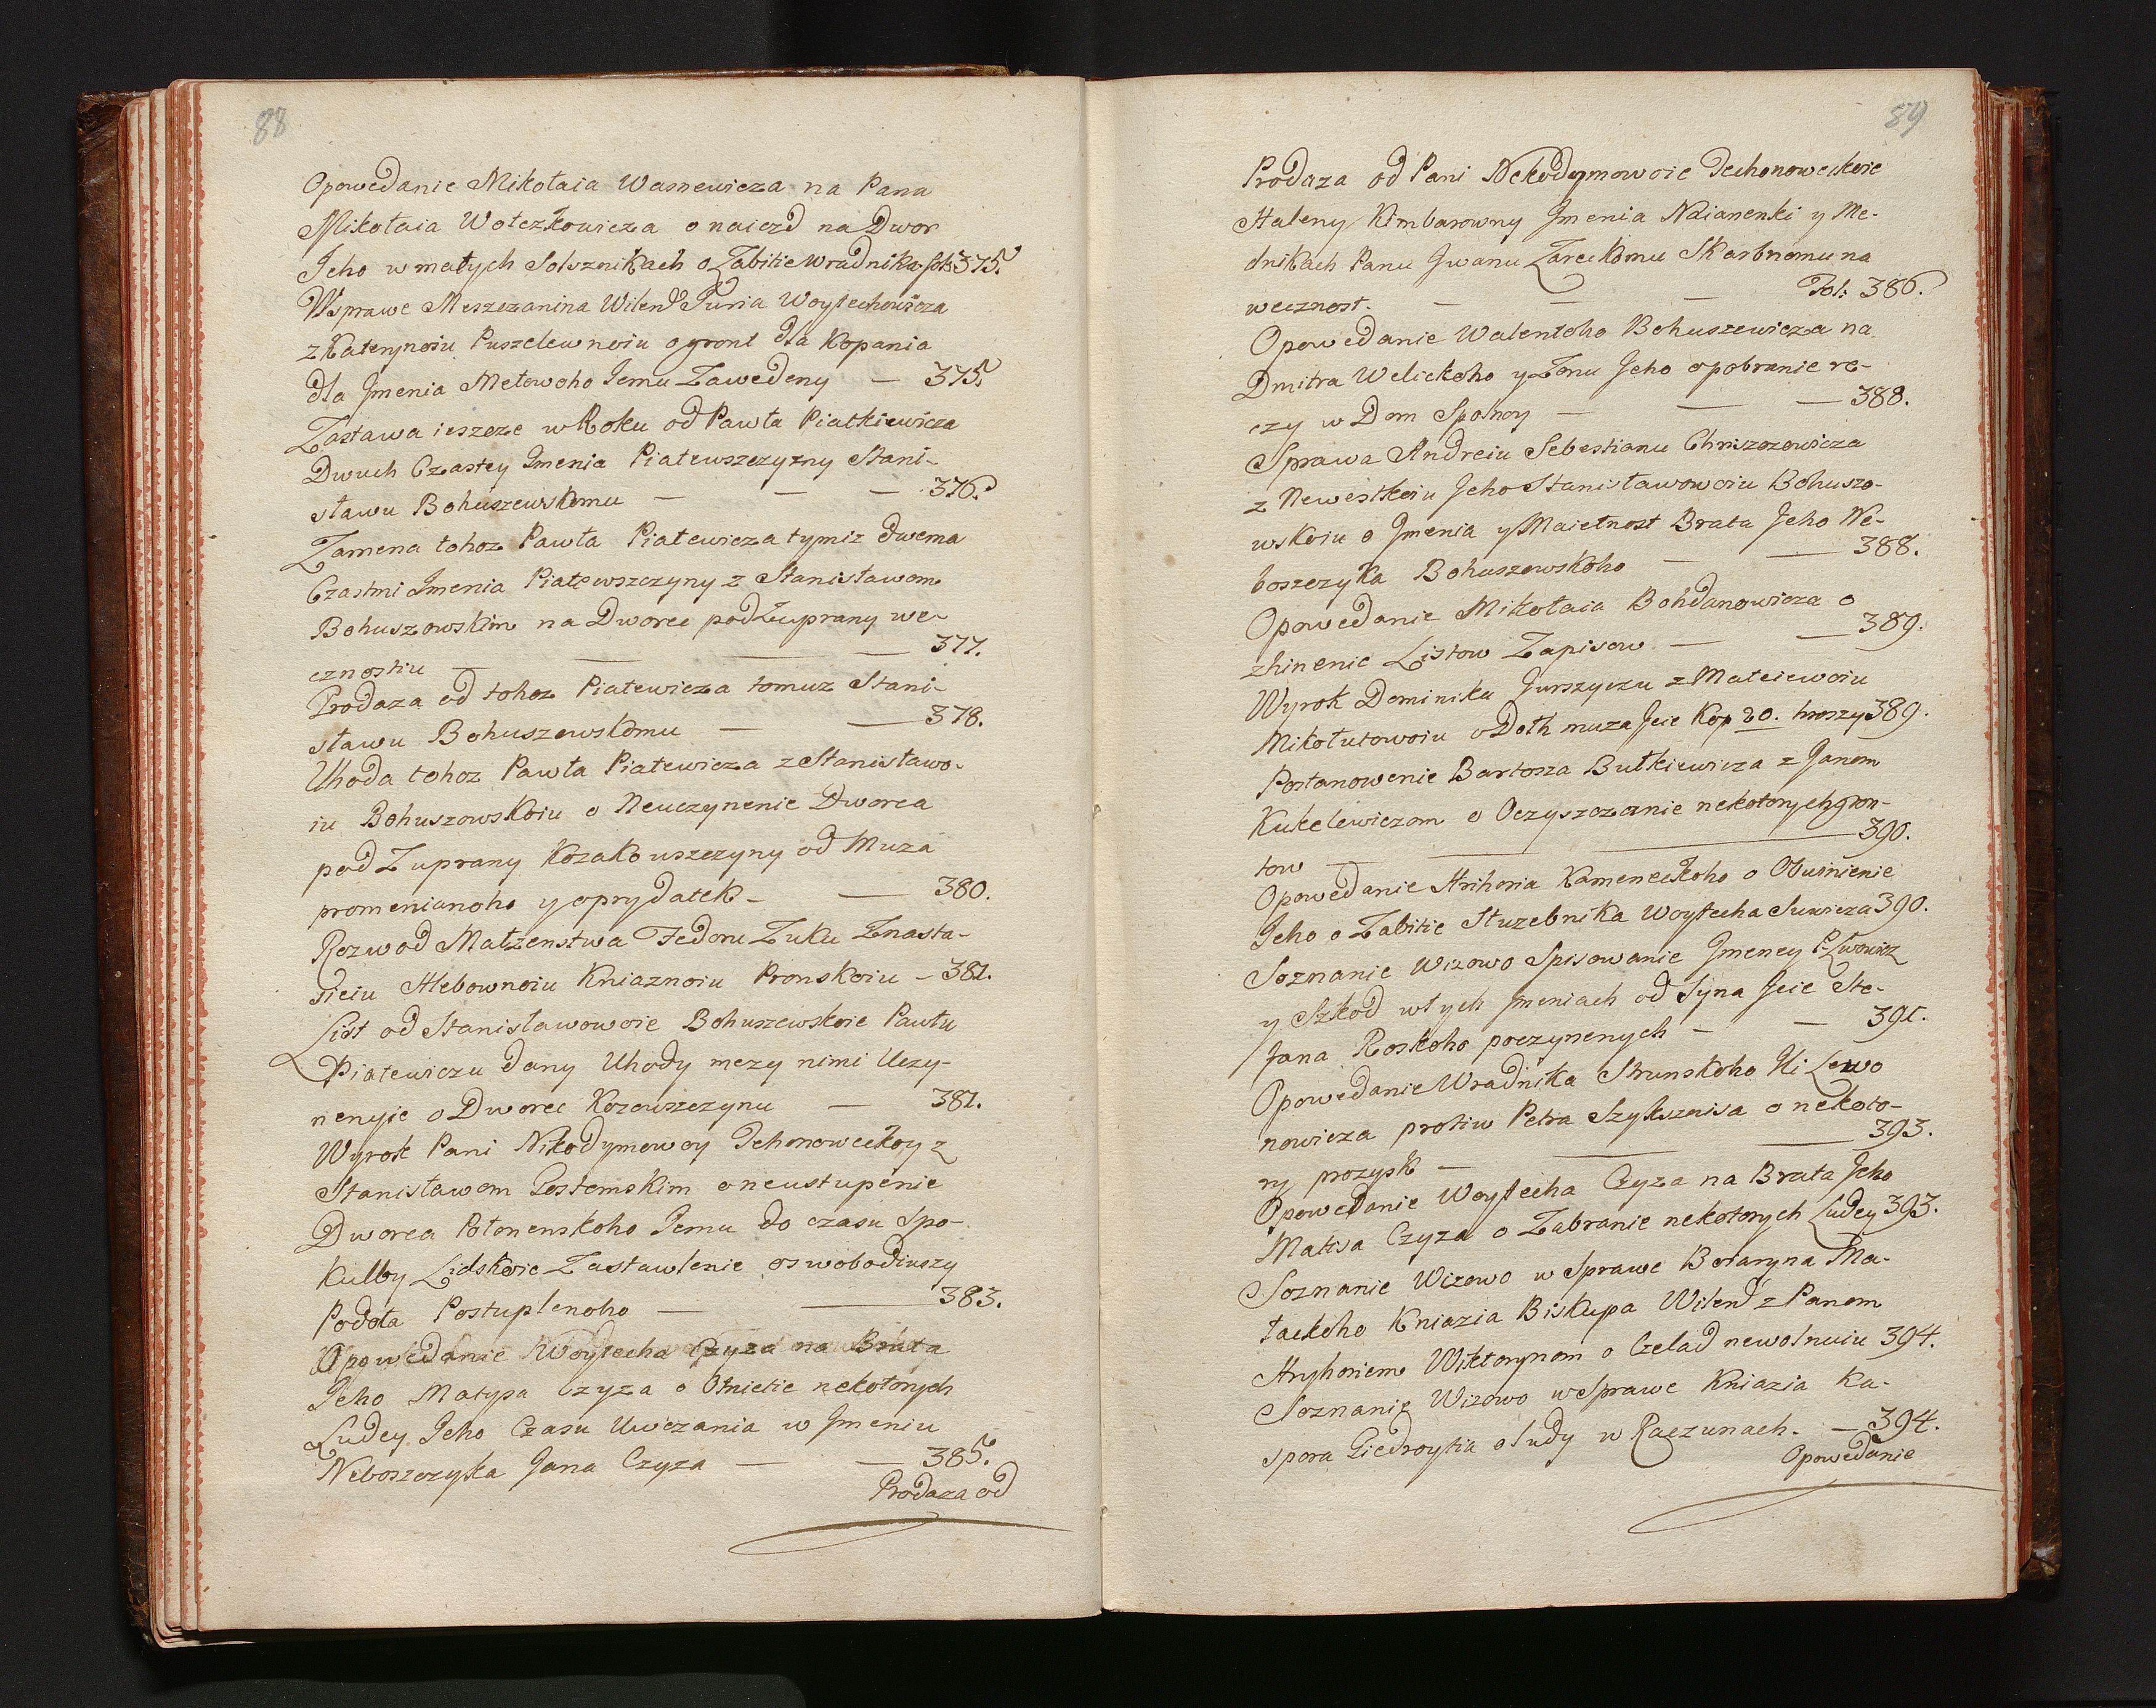 88
Opowedanie Mikołaia Wasnewicza na Pana
Mikołaia Wołczkowicza o naiezd na Dwor
Jeho w małych Solsznikach o Zabitie wradnika. fol: 375.
W sprawe Meszczanina Wilend Juria Woytechowicza
z Katerynoiu Puszelewnoiu o gront dla Kopania
dla Jmenia Metewoho Jemu Zawedeny — 375.
Zastawa ieszcze w Roku od Pawła Piatkiewicza
Dwuch Czastey Jmenia Piatewszczyzny Stani-
sławu Bohuszewskomu — — — 376.
Zamena tohoz Pawła Piatewicza tymiz dwema
Czastmi Jmenia Piatewszczyny z Stanisławom
Bohuszowskim na Dworec pod Zuprany we-
cznostiu — — — — 377.
Prodaza od tohoz Piatewicza tomuz Stani-
sławu Bohuszewskomu — — 378.
Uhoda tohoz Pawła Piatewicza z Stanisławo-
iu Bohuszowskoiu o Neuczynenie Dworca
pod Zuprany Kozakowszczyny od Muza
promenianoho y o prydatek — — 380.
Rozwod Małzenstwa Fedora Zuku Znasta-
sieiu Hlebownoiu Kniaznoiu Pronskoiu — 381.
List od Stanisławowoie Bohuszewskoie Pawłu
Piatewiczu dany Uhody mezy nimi Uczy-
nenyie o Dworec Kozowszczynu — 381.
Wyrok Pani Nikodymowoy Jehonoweckoy z
Stanisławom Gostemskim o neustupenie
Dworca Połonenskoho Jemu do czasu Spo-
Kulby Lidskoie Zastawlenie oswobodiwszy
Podota Postuplenoho — — 383.
Opowedanie Woytecha Czyza na Brata
Jeho Matysa Czyza o Otnietie nekotorych
Ludey Jeho Czasu Uwiezania w Jmeniu
Neboszczyka Jana Czyza — — 385.
Prodaza od
89
Prodaza od Pani Nekodymowoie Jechonoweckoie
Haleny Kimbarowny Jmenia Naianenki y Me-
dnikach Panu Jwanu Zareckomu Skarbnomu na
wecznost. — — — Fol: 386.
Opowedanie Walentoho Bohuszewicza na
Dmitra Welickoho y Zonu Jeho o pobranie re-
czy w Dom Spolnoy — — — 388.
Sprawa Andreiu Sebestianu Chriszczowicza
z Newestkoiu Jeho Stanisławowoiu Bohuszo-
wskoiu o Jmenia y Maietnost Brata Jeho Ne-
boszczyka Bohuszowskoho — — 388.
Opowedanie Mikołaia Bohdanowicza o
zhinenie Listow Zapisow — — 389.
Wyrok Dominiku Jurszyczu z Mateiewoiu
Mikołutowoiu o Dołh muza Jeie Kop 20. hroszy 389.
Postanowenie Bartosza Butkiewicza z Janom
Kukelewiczom o Oczyszczanie nekotorych gron-
tow — — — 390.
Opowedanie Hrihoria Kameneckoho o Obwinienie
Jeho o Zabitie Słuzebnika Woytecha Suwicza 390.
Soznanie Wizowo Spisowanie Jmeney P. Lwowicz
y Szkod w tych Jmeniach od Syna Jeie Ste-
fana Roskoho poczynenych — — 391.
Opowedanie Wradnika Strunskoho Hi Lewo
nowicza protiw Petra Szyksznisa o nekoto-
ry pozysk — — — 393.
Opowedanie Woytecha Czyza na Brata Jeho
Matisa Czyza o Zabranie nekotorych Ludey 393.
Soznanie Wizowo w Sprawe Botaryna Ma-
tackoho Kniazia Biskupa Wilend z Panom
Hryhoriem Wiktorynom o Czelad newolnuiu 394.
Soznanie Wizowo w Sprawe Kniazia Ka-
spora Giedroytia o ludy w Raczunach. — 394.
Opowedanie